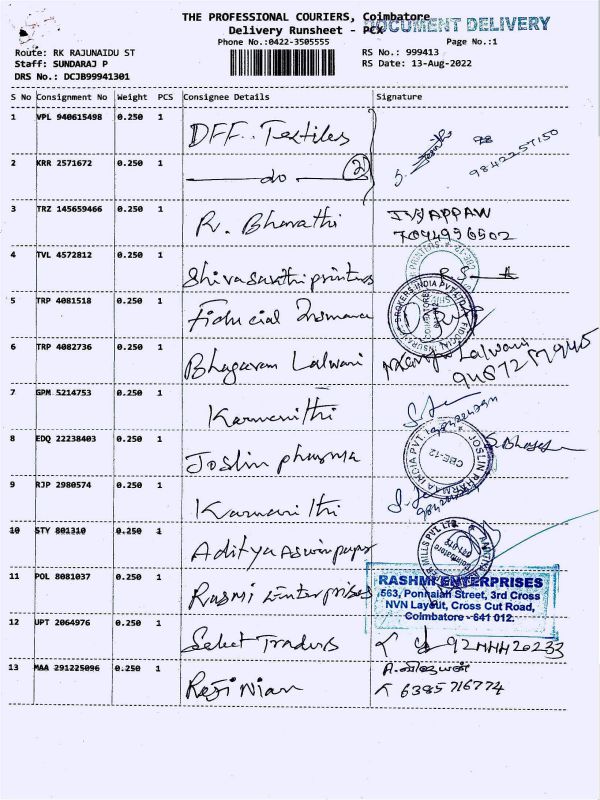 THE PROFESSIONAL COURIERS, Coimbatore
DOCUMENT DELIVERY
Delivery Runsheet - PCX
Phone No.:0422-3505555
Page No.:1
Route: RK RAJUNAIDU ST
RS No.: 999413
Staff: SUNDARAJ P
RS Date: 13-Aug-2022
DRS No.: DCJB99941301
S No Consignment No Weight PCS Consignee Details Signature
1 VPL 940615498 0.250 1 DFF.. Textiles
2 KRR 2571672 0.250 1 do 2
3 TRZ 145659466 0.250 1 R. Bharathi
4 TVL 4572812 0.250 1 Shivasakthi printers
5 TRP 4081518 0.250 1 Fiducial Insurance
6 TRP 4082736 0.250 1 Bhagavan Lalwani Lalwani
7 GPM 5214753 0.250 1 Karmanithi
8 EDQ 22238403 0.250 1 Joslin pharma
JOSLIN PHARMA INDIA PVT.
CBE-12
9 RJP 2980574 0.250 1 Karmanithi
10 STY 801310 0.250 1 Aditya Aswin paper
11 POL 8081037 0.250 1 Rasmi Enterprises
RASHMI ENTERPRISES
563, Ponnaiah Street, 3rd Cross
NVN Layout, Cross Cut Road,
Coimbatore - 641 012.
12 UPT 2064976 0.250 1 Select Traders
13 MAA 291225096 0.250 1 Reji Nian
6385716774